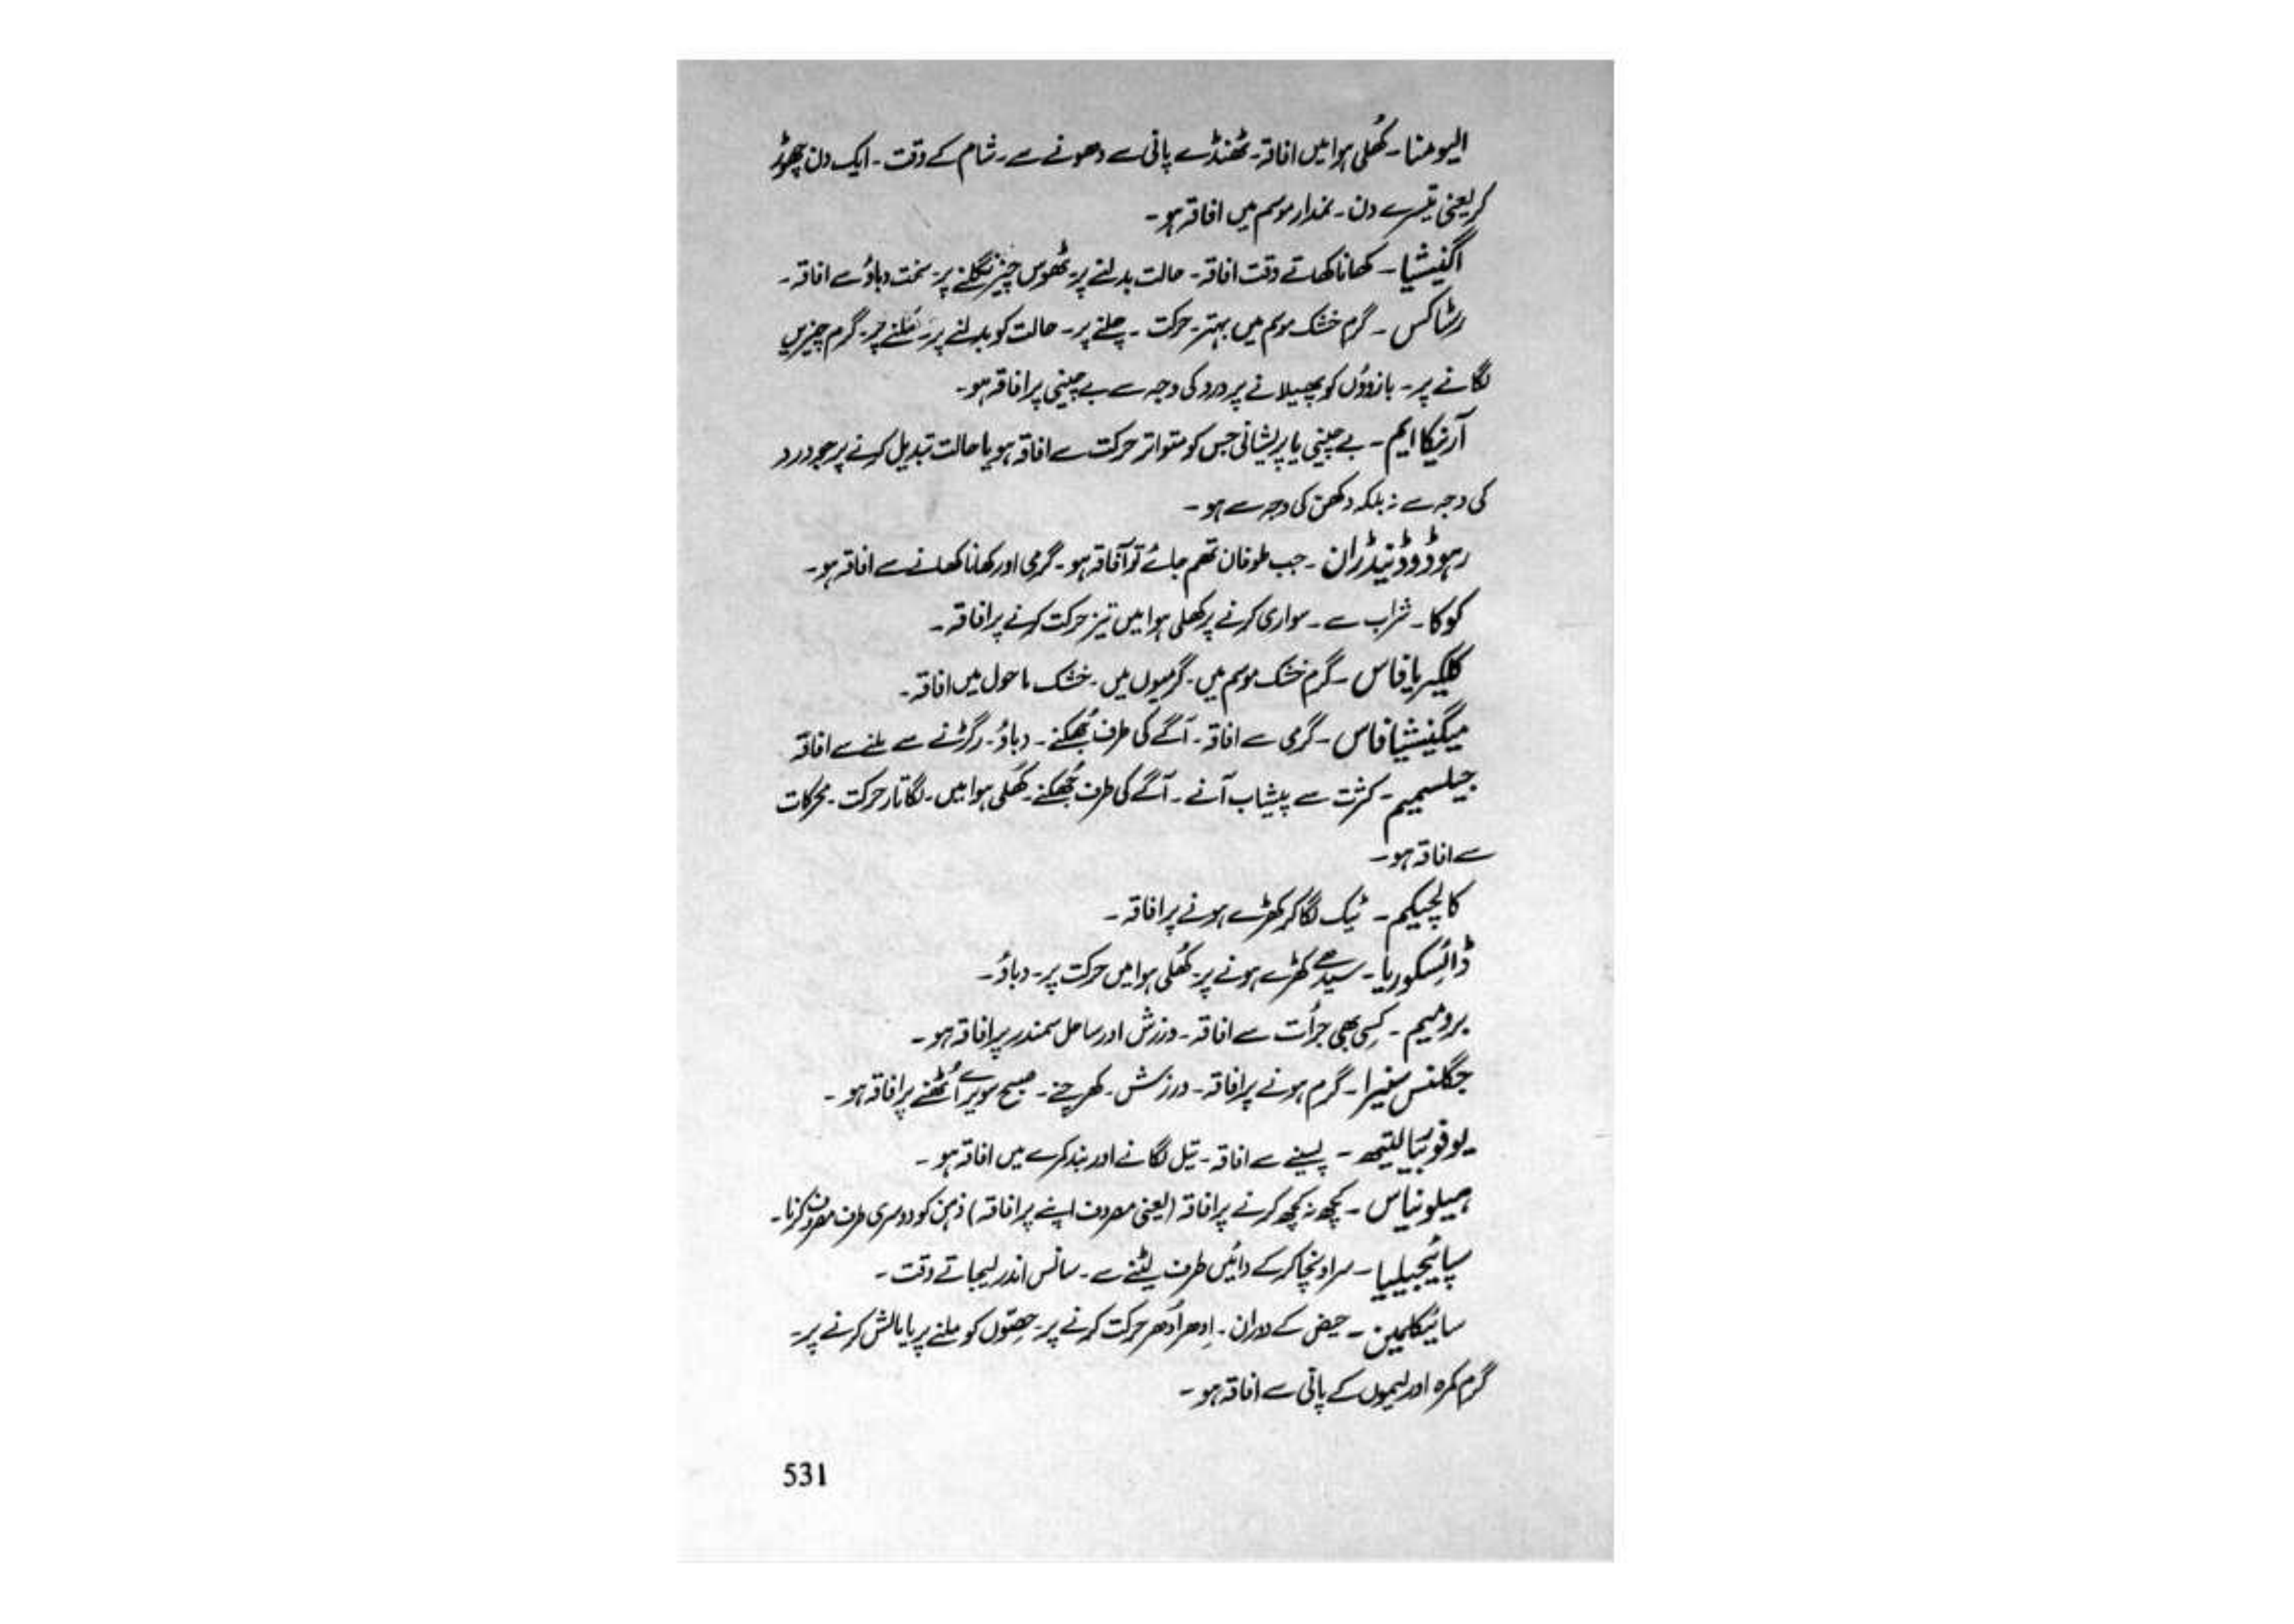 الیومنا۔ کُھلی ہوا میں افاقہ۔ ٹھنڈے پانی سے دھونے سے۔ شام کے وقت۔ ایک دن چھوڑ
کر یعنی تیسرے دن۔ نمدار موسم میں افاقہ ہو۔
اگنیشیا۔ کھانا کھاتے وقت افاقہ۔ حالت بدلنے پر۔ ٹھوس چیز نگلنے پر۔ سخت دباؤ سے افاقہ۔
رسٹاکس۔ گرم خشک موسم میں بہتر۔ حرکت۔ چلنے پر۔ حالت کو بدلنے پر۔ مَلنے پر۔ گرم چیزیں
لگانے پر۔ بازوؤں کو پھیلانے پر درد کی وجہ سے بے چینی پر افاقہ ہو۔
آرنیکا ایم۔ بے چینی یا پریشانی جس کو متواتر حرکت سے افاقہ ہو یا حالت تبدیل کرنے پر جو درد
کی وجہ سے نہ بلکہ دکھن کی وجہ سے ہو۔
رہوڈوڈنیڈران۔ جب طوفان تھم جائے تو آفاقہ ہو۔ گرمی اور کھانا کھانے سے افاقہ ہو۔
کوکا۔ شراب سے۔ سواری کرنے پر کھلی ہوا میں تیز حرکت کرنے پر افاقہ۔
کلکیریا فاس۔ گرم خشک موسم میں۔ گرمیوں میں۔ خشک ماحول میں افاقہ۔
میگنیشیا فاس۔ گرمی سے افاقہ۔ آگے کی طرف جُھکنے۔ دباؤ۔ رگڑنے سے ملنے سے افاقہ
جیلسمیم۔ کثرت سے پیشاب آنے۔ آگے کی طرف جُھکنے۔ کُھلی ہوا میں۔ لگاتار حرکت۔ محرکات
سے افاقہ ہو۔
کالچیکم۔ ٹیک لگا کر کھڑے ہونے پر افاقہ۔
ڈائسکوریا۔ سیدھے کھڑے ہونے پر۔ کُھلی ہوا میں حرکت پر۔ دباؤ۔
برومیم۔ کِسی بھی جرأت سے افاقہ۔ ورزش اور ساحل سمندر پر افاقہ ہو۔
جگلنس سنیرا۔ گرم ہونے پر افاقہ۔ ورزش۔ کھرچنے۔ صبح سویرے اُٹھنے پر افاقہ ہو۔
پسینے سے افاقہ۔ تیل لگانے اور بند کمرے میں افاقہ ہو۔
ہیلونیاس۔ کچھ نہ کچھ کرنے پر افاقہ (یعنی مصروف اپنے پر افاقہ) ذہن کو دوسری طرف مصروف کرنا۔
سپائیجیلیا۔ سر اونچا کر کے دائیں طرف لیٹنے سے۔ سانس اندر لیجاتے وقت۔
سائیکلیمین۔ حیض کے دوران۔ اِدھر اُدھر حرکت کرنے پر۔ حصّوں کو ملنے پر یا مالش کرنے پر۔
گرم کمرہ اور لیموں کے پانی سے افاقہ ہو۔
531